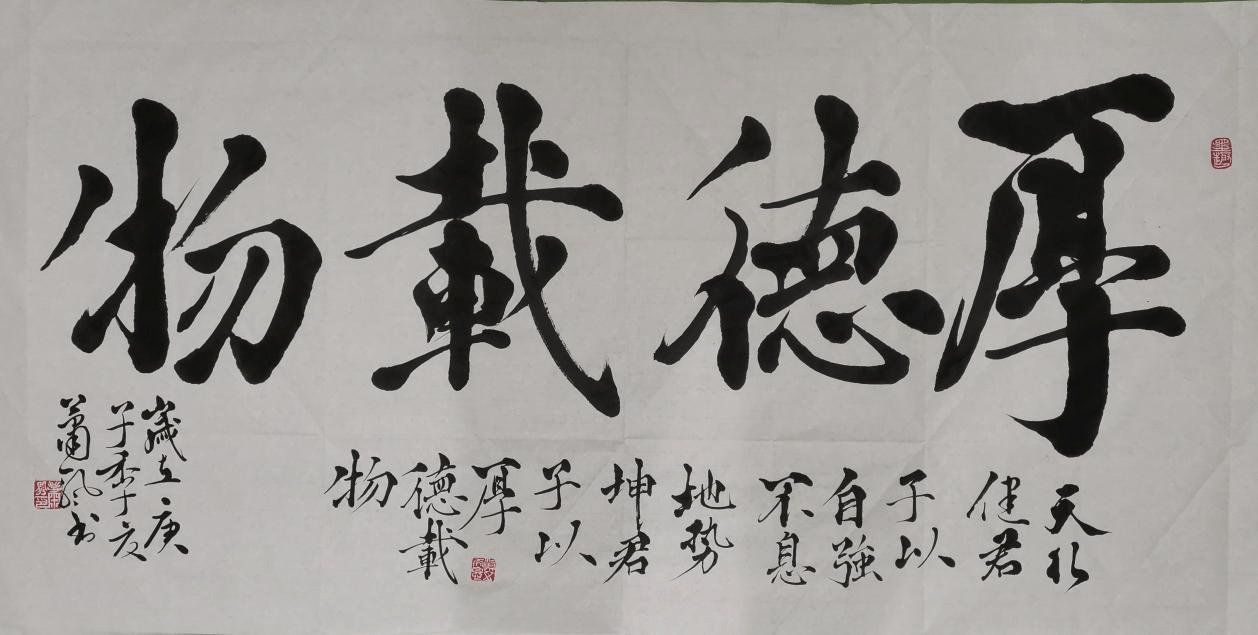 厚德載物
天行
健君
子以
自強
不息
地勢
坤君
子以
厚
德載
物
歲在庚
子秊夏
蕭風書